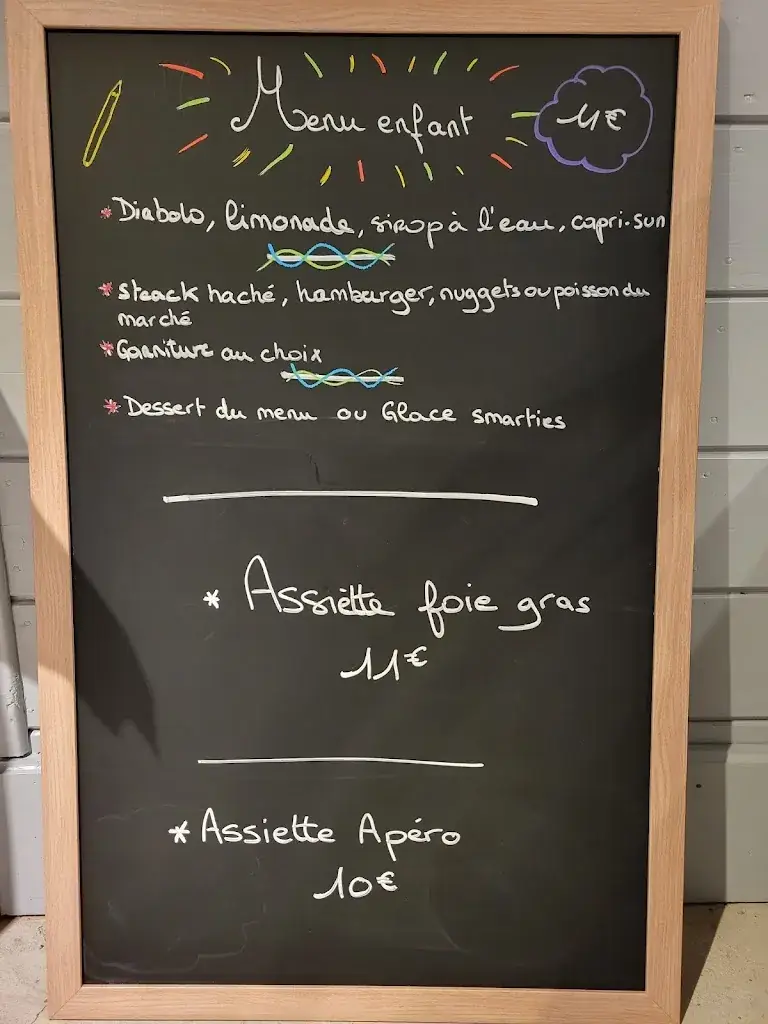 Menu enfant 11€
* Diabolo, limonade, sirop à l'eau, capri-sun
* Steack haché, hamburger, nuggets ou poisson du
marché
* Garniture au choix
* Dessert du menu ou Glace smarties
* Assiètte foie gras
11€
* Assiette Apéro
10€